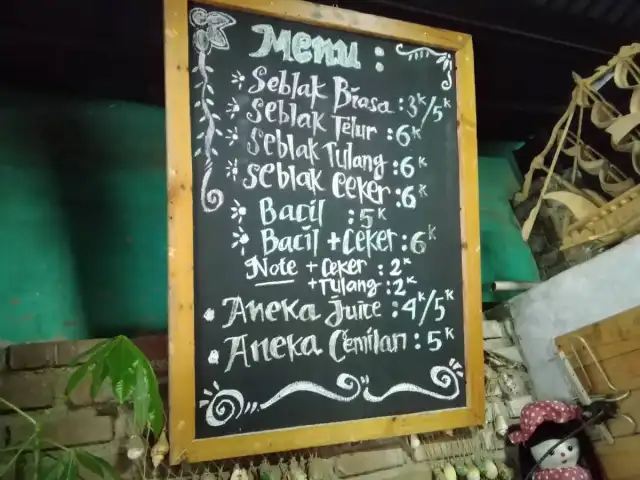 Menu :
Seblak Biasa : 3K/5K
Seblak Telur : 6K
Seblak Tulang : 6K
Seblak Ceker : 6K
Bacil : 5K
Bacil + Ceker : 6K
Note + Ceker : 2K
+ Tulang : 2K
Aneka Juice : 4K/5K
Aneka Cemilan : 5K